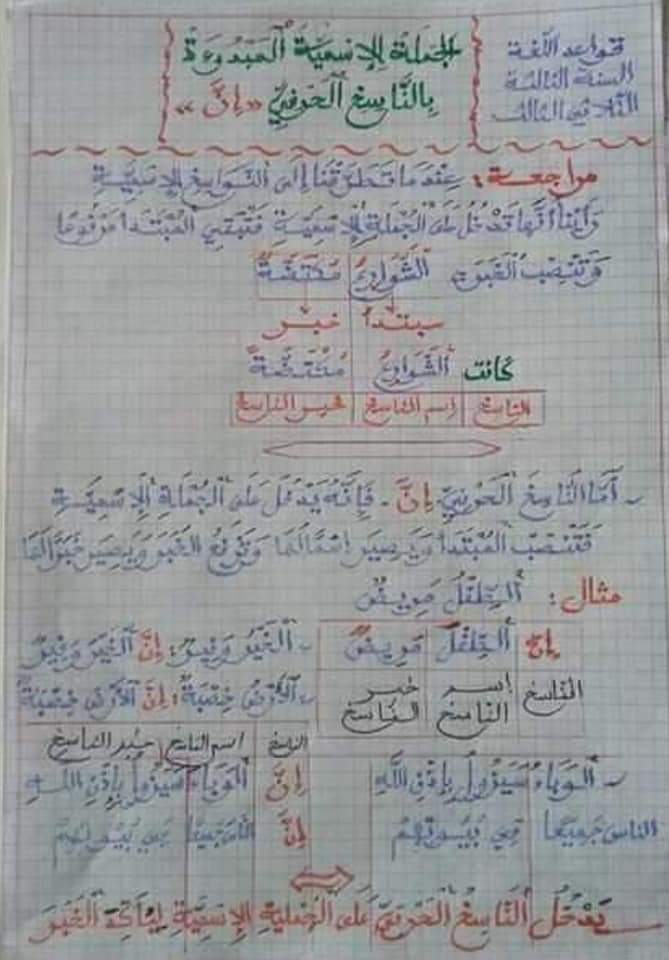 قواعد اللغة
السنة الثالثة
الثلاثي الثالث
الجملة الإسمية المبدوءة
بالنّاسخ الحرفيّ «إنّ»
مراجعة: عندما تطرّقنا إلى النّواسخ الإسميّة
رأينا أنّها تدخل على الجملة الإسميّة فتبقي المبتدأ مرفوعا
وتنصب الخبر. الشّوارعُ مكتضّةٌ
مبتدأ خبر
كانت الشّوارعُ مكتضّةً
الناسخ إسم الناسخ خبر الناسخ
- أمّا النّاسخ الحرفيّ إنّ. فإنّه يدخل على الجملة الإسميّة
فتنصب المبتدأ ويصير اسمًا لها وترفع الخبر ويصير خبرًا لها
مثال: الطّفلُ مريضٌ
إنّ الطّفلَ مريضٌ
الناسخ إسم الناسخ خبر الناسخ
- الخيرُ وفيرٌ: إنّ الخيرَ وفيرٌ
- الأرضُ خصبةٌ: إنّ الأرضَ خصبةٌ
الناسخ اسم الناسخ خبر الناسخ
- الوباءُ سيزولُ بإذن اللّهِ إنّ الوباءَ سيزولُ بإذن اللّه
الناس جميعا في بيوتهم إنّ الناس جميعا في بيوتهم
يدخل النّاسخ الحرفيّ على الجملة الإسميّة ليؤكّد الخبر